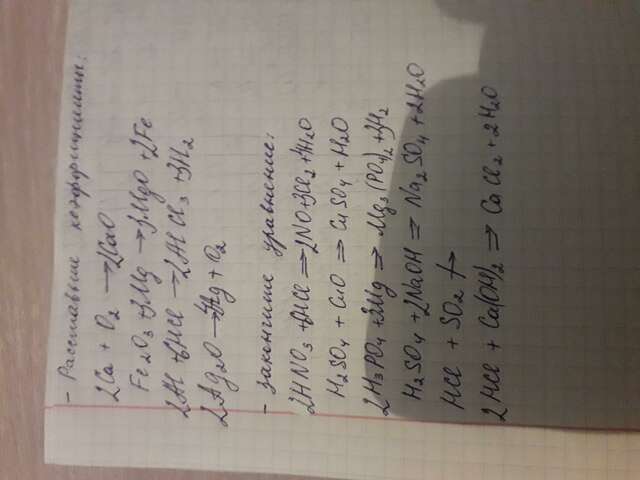 - Расставьте коэффициенты:
2Ca + O₂ → 2CaO
Fe₂O₃ + 3Mg → 3MgO + 2Fe
2Al + 6HCl → 2AlCl₃ + 3H₂
2Ag₂O → 4Ag + O₂
- закончите уравнение:
2HNO₃ + 6HCl = 2NO + 3Cl₂ + 4H₂O
H₂SO₄ + CuO = CuSO₄ + H₂O
2H₃PO₄ + 3Mg = Mg₃(PO₄)₂ + 3H₂
H₂SO₄ + 2NaOH = Na₂SO₄ + 2H₂O
HCl + SO₂ ↛
2HCl + Ca(OH)₂ = CaCl₂ + 2H₂O